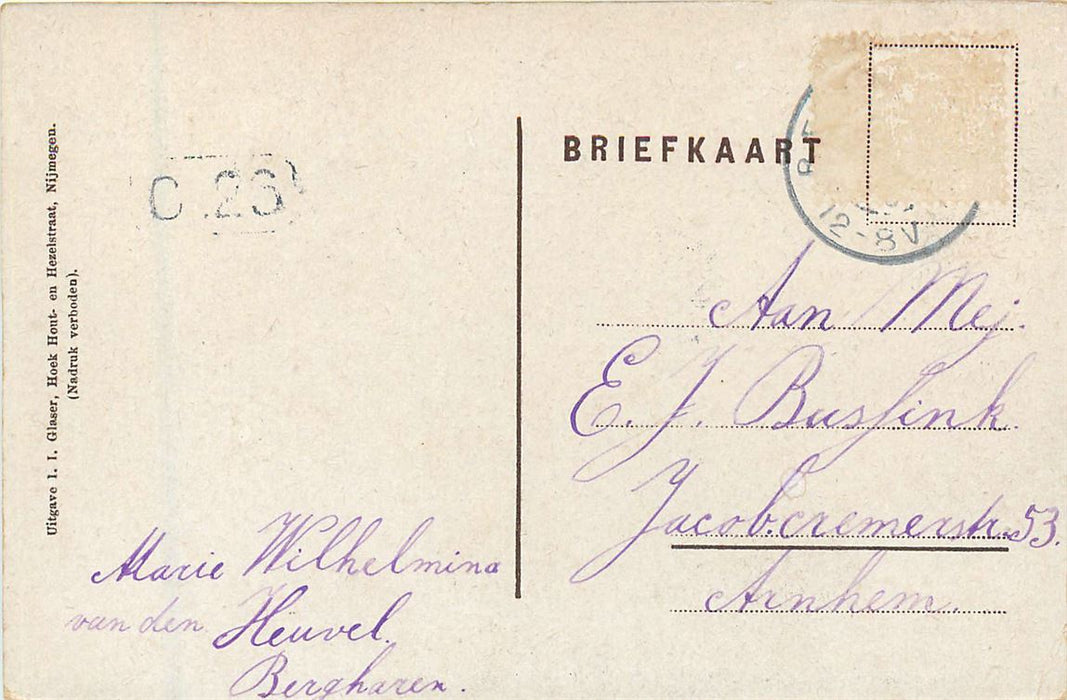 Uitgave I. I. Glaser, Hoek Hout- en Hezelstraat, Nijmegen.
(Nadruk verboden).
C 23
BRIEFKAART
12-8V
Aan Mej.
E. J. Bussink
Jacob.cremerstr. 53.
Arnhem.
Marie Wilhelmina
van den Heuvel.
Bergharen.